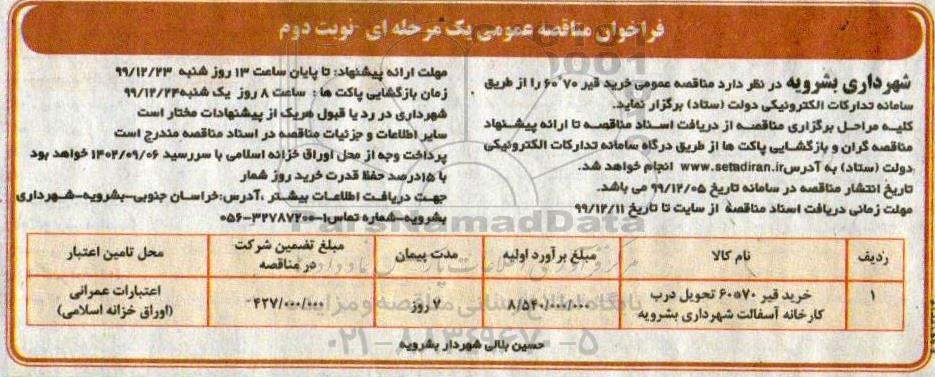 فراخوان مناقصه عمومی یک مرحله ای -نوبت دوم
شهرداری بشرویه در نظر دارد مناقصه عمومی خرید قیر ۷۰*۶۰ را از طریق
سامانه تدارکات الکترونیکی دولت (ستاد) برگزار نماید.
کلیه مراحل برگزاری مناقصه از دریافت اسناد مناقصه تا ارائه پیشنهاد
مناقصه گران و بازگشایی پاکت ها از طریق درگاه سامانه تدارکات الکترونیکی
دولت (ستاد) به آدرس www.setadiran.ir انجام خواهد شد.
تاریخ انتشار مناقصه در سامانه تاریخ ۹۹/۱۲/۰۵ می باشد.
مهلت زمانی دریافت اسناد مناقصه از سایت تا تاریخ ۹۹/۱۲/۱۱
مهلت ارائه پیشنهاد: تا پایان ساعت ۱۳ روز شنبه ۹۹/۱۲/۲۳
زمان بازگشایی پاکت ها : ساعت ۸ روز یک شنبه ۹۹/۱۲/۲۴
شهرداری در رد یا قبول هریک از پیشنهادات مختار است
سایر اطلاعات و جزئیات مناقصه در اسناد مناقصه مندرج است
پرداخت وجه از محل اوراق خزانه اسلامی با سررسید ۱۴۰۲/۰۹/۰۶ خواهد بود
با ۱۵درصد حفظ قدرت خرید روز شمار
جهت دریافت اطلاعات بیشتر ،آدرس:خراسان جنوبی-بشرویه-شهرداری
بشرویه-شماره تماس:۱-۳۲۷۸۷۲۰۰-۰۵۶
ParsNamadData
ردیف نام کالا مبلغ برآورد اولیه مدت پیمان مبلغ تضمین شرکت در مناقصه محل تامین اعتبار
۱ خرید قیر ۷۰*۶۰ تحویل درب کارخانه آسفالت شهرداری بشرویه ۸/۵۴۰/۰۰۰/۰۰۰ ۷ روز ۴۲۷/۰۰۰/۰۰۰ اعتبارات عمرانی (اوراق خزانه اسلامی)
حسین بلالی شهردار بشرویه